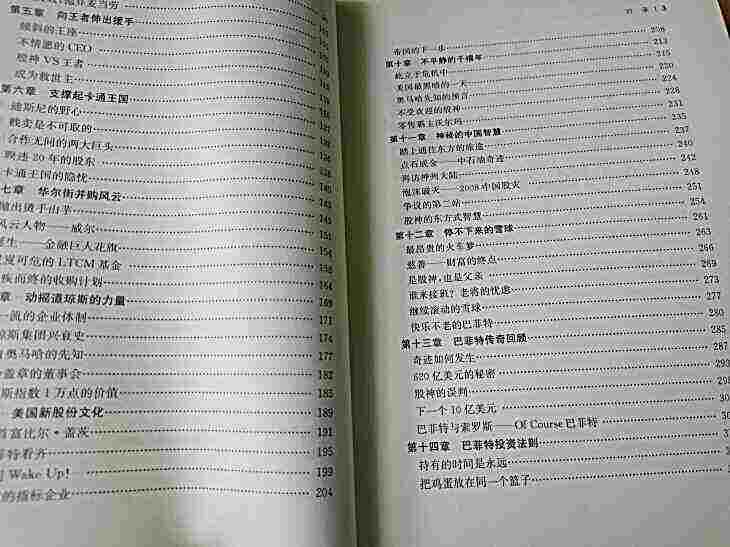 第五章 向王者伸出援手
倾斜的王座
不情愿的CEO
股神VS王者
成为救世主
第六章 支撑起卡通王国
迪斯尼的野心
贱卖是不可取的
合作无间的两大巨头
睽违20年的股东
卡通王国的隐忧
七章 华尔街并购风云
抛出烫手山芋
风云人物——威尔 151
诞生——金融巨人花旗 154
可危的LTCM基金 156
疾而终的收购计划 164
章 动摇道琼斯的力量 169
流的企业体制 171
琼斯集团兴衰史 174
奥马哈的先知 177
盖章的董事会 182
斯指数1万点的价值 185
美国新股份文化 189
首富比尔·盖茨 191
菲特看齐 195
Wake Up! 199
的指标企业 204
目 录 3
帝国的下一步 208
第十章 不平静的千禧年 213
屹立于危机中 215
美国最黑暗的一天 220
奥马哈先知的预言 224
不受欢迎的股神 226
零售霸主沃尔玛 231
第十一章 神秘的中国智慧 235
踏上通往东方的旅途 237
点石成金——中石油奇迹 240
再访神州大陆 242
泡沫破灭——2008中国股灾 248
争议的第二站 251
股神的东方式智慧 254
第十二章 停不下来的雪球 261
最昂贵的火车梦 263
慈善——财富的终点 266
是股神,也是父亲 269
谁来接班?老将的忧虑 273
继续滚动的雪球 277
快乐不老的巴菲特 280
第十三章 巴菲特传奇回顾 285
奇迹如何发生 287
620亿美元的秘密 29
股神的误判 29
下一个10亿美元 30
巴菲特与索罗斯——Of Course巴菲特 3
第十四章 巴菲特投资法则 3
持有的时间是永远
把鸡蛋放在同一个篮子